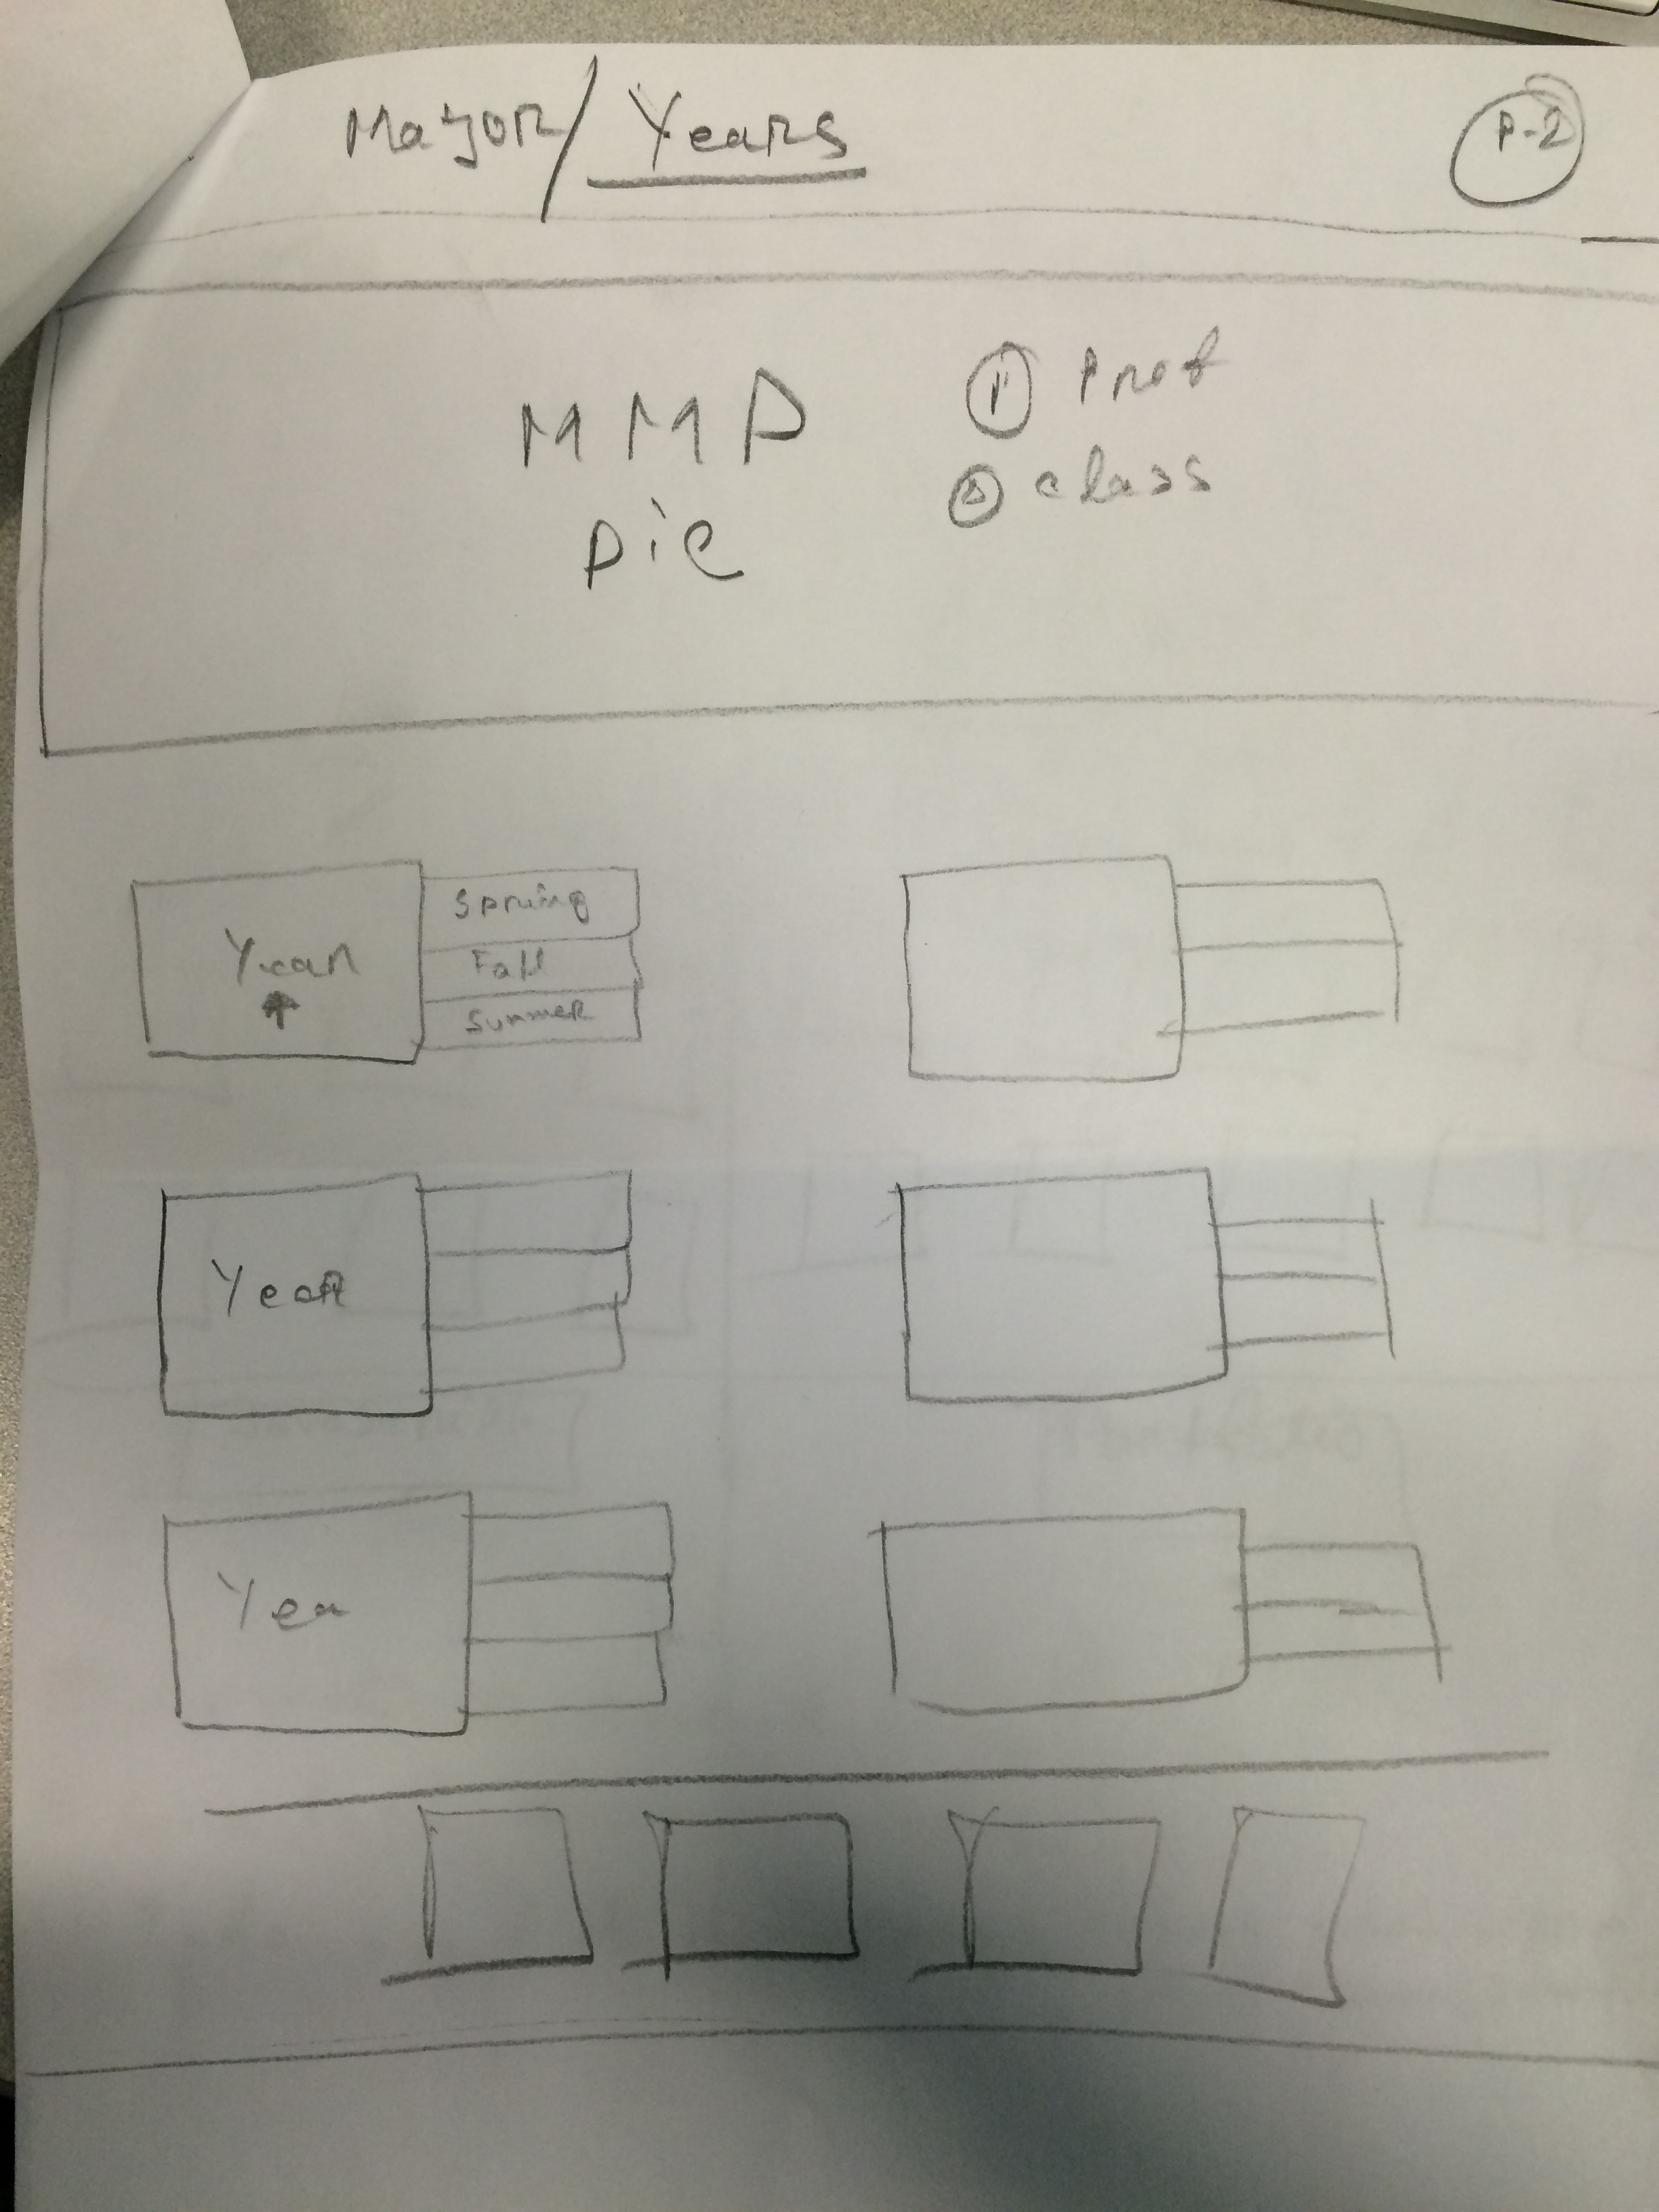 Major/Years
P-2
MMP
① Prof
② class
pic
Year
Spring
Fall
Summer
Year
Yea